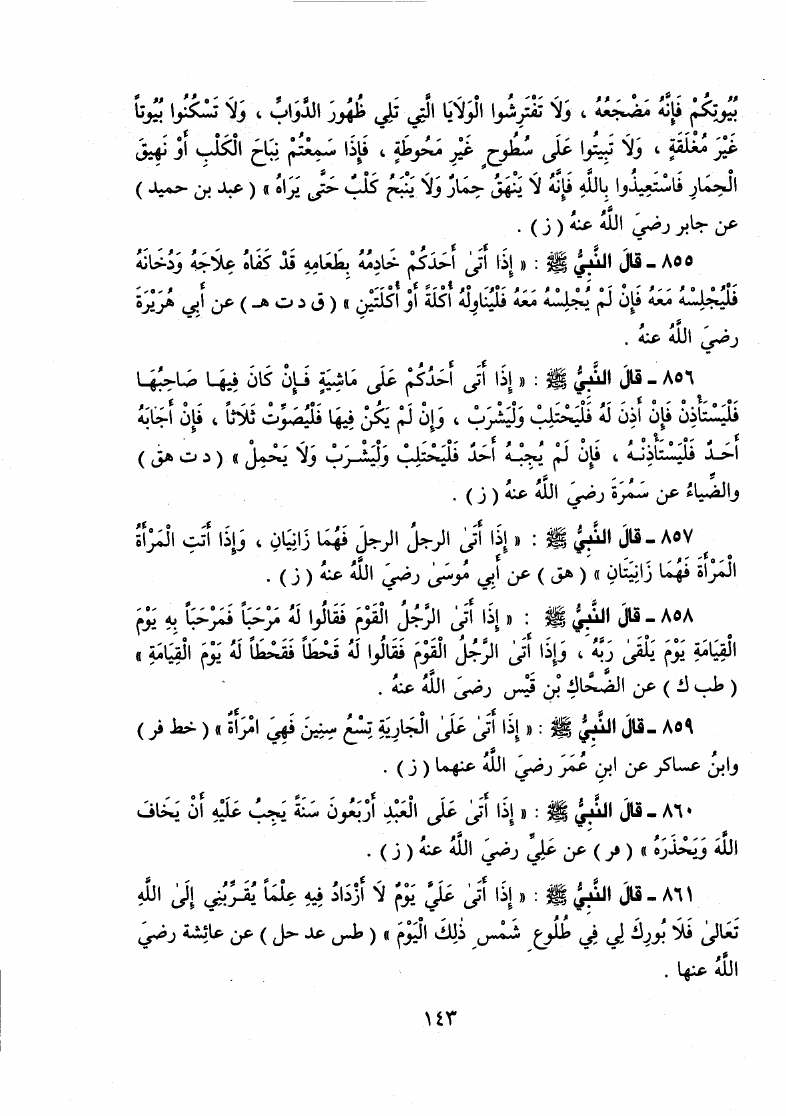 بُيُوتِكُمْ فَإِنَّهُ مَضْجَعُهُ ، وَلَا تَفْتَرِشُوا الْوَلَايَا الَّتِي تَلِي ظُهُورَ الدَّوَابِّ ، وَلَا تَسْكُنُوا بُيُوتاً
غَيْرَ مُغْلَقَةٍ ، وَلَا تَبِيتُوا عَلَى سُطُوحٍ غَيْرِ مَحُوطَةٍ ، فَإِذَا سَمِعْتُمْ نِبَاحَ الْكَلْبِ أَوْ نَهِيقَ
الْحِمَارِ فَاسْتَعِيذُوا بِاللَّهِ فَإِنَّهُ لَا يَنْهَقُ حِمَارٌ وَلَا يَنْبَحُ كَلْبٌ حَتَّى يَرَاهُ » ( عبد بن حميد )
عن جابر رضيَ اللَّهُ عنهُ ( ز ) .
٨٥٥ - قالَ النَّبِيُّ ﷺ : « إِذَا أَتَىٰ أَحَدَكُمْ خَادِمُهُ بِطَعَامِهِ قَدْ كَفَاهُ عِلَاجَهُ وَدُخَانَهُ
فَلْيُجْلِسْهُ مَعَهُ فَإِنْ لَمْ يُجْلِسْهُ مَعَهُ فَلْيُنَاوِلْهُ أُكْلَةً أَوْ أُكْلَتَيْنِ » ( ق د ت هـ ) عن أَبِي هُرَيْرَةَ
رضيَ اللَّهُ عنهُ .
٨٥٦ - قالَ النَّبِيُّ ﷺ : « إِذَا أَتَىٰ أَحَدُكُمْ عَلَى مَاشِيَةٍ فَإِنْ كَانَ فِيهَا صَاحِبُهَا
فَلْيَسْتَأْذِنْ فَإِنْ أَذِنَ لَهُ فَلْيَحْتَلِبْ وَلْيَشْرَبْ ، وَإِنْ لَمْ يَكُنْ فِيهَا فَلْيُصَوِّتْ ثَلَاثاً ، فَإِنْ أَجَابَهُ
أَحَدٌ فَلْيَسْتَأْذِنْهُ ، فَإِنْ لَمْ يُجِبْهُ أَحَدٌ فَلْيَحْتَلِبْ وَلْيَشْرَبْ وَلَا يَحْمِلْ » ( د ت هق )
والضِّياءُ عن سَمُرَةَ رضيَ اللَّهُ عنهُ ( ز ) .
٨٥٧ - قالَ النَّبِيُّ ﷺ : « إِذَا أَتَىٰ الرجلُ الرجلَ فَهُمَا زَانِيَانِ ، وَإِذَا أَتَتِ الْمَرْأَةُ
الْمَرْأَةَ فَهُمَا زَانِيَتَانِ » ( هق ) عن أَبِي مُوسَىٰ رضيَ اللَّهُ عنهُ ( ز ) .
٨٥٨ - قالَ النَّبِيُّ ﷺ : « إِذَا أَتَىٰ الرَّجُلُ الْقَوْمَ فَقَالُوا لَهُ مَرْحَباً فَمَرْحَباً بِهِ يَوْمَ
الْقِيَامَةِ يَوْمَ يَلْقَىٰ رَبَّهُ ، وَإِذَا أَتَىٰ الرَّجُلُ الْقَوْمَ فَقَالُوا لَهُ قَحْطاً فَقَحْطاً لَهُ يَوْمَ الْقِيَامَةِ »
( طب ك ) عن الضَّحَّاكِ بْنِ قَيْسٍ رضيَ اللَّهُ عنهُ .
٨٥٩ - قالَ النَّبِيُّ ﷺ : « إِذَا أَتَىٰ عَلَىٰ الْجَارِيَةِ تِسْعُ سِنِينَ فَهِيَ امْرَأَةٌ » ( خط فر )
وابنُ عساكر عن ابنِ عُمَرَ رضيَ اللَّهُ عنهما ( ز ) .
٨٦٠ - قالَ النَّبِيُّ ﷺ : « إِذَا أَتَىٰ عَلَى الْعَبْدِ أَرْبَعُونَ سَنَةً يَجِبُ عَلَيْهِ أَنْ يَخَافَ
اللَّهَ وَيَحْذَرَهُ » ( فر ) عن عَلِيٍّ رضيَ اللَّهُ عنهُ ( ز ) .
٨٦١ - قالَ النَّبِيُّ ﷺ : « إِذَا أَتَىٰ عَلَيَّ يَوْمٌ لَا أَزْدَادُ فِيهِ عِلْماً يُقَرِّبُنِي إِلَىٰ اللَّهِ
تَعَالَىٰ فَلَا بُورِكَ لِي فِي طُلُوعِ شَمْسِ ذٰلِكَ الْيَوْمَ » ( طس عد حل ) عن عائِشة رضيَ
اللَّهُ عنها .
١٤٣